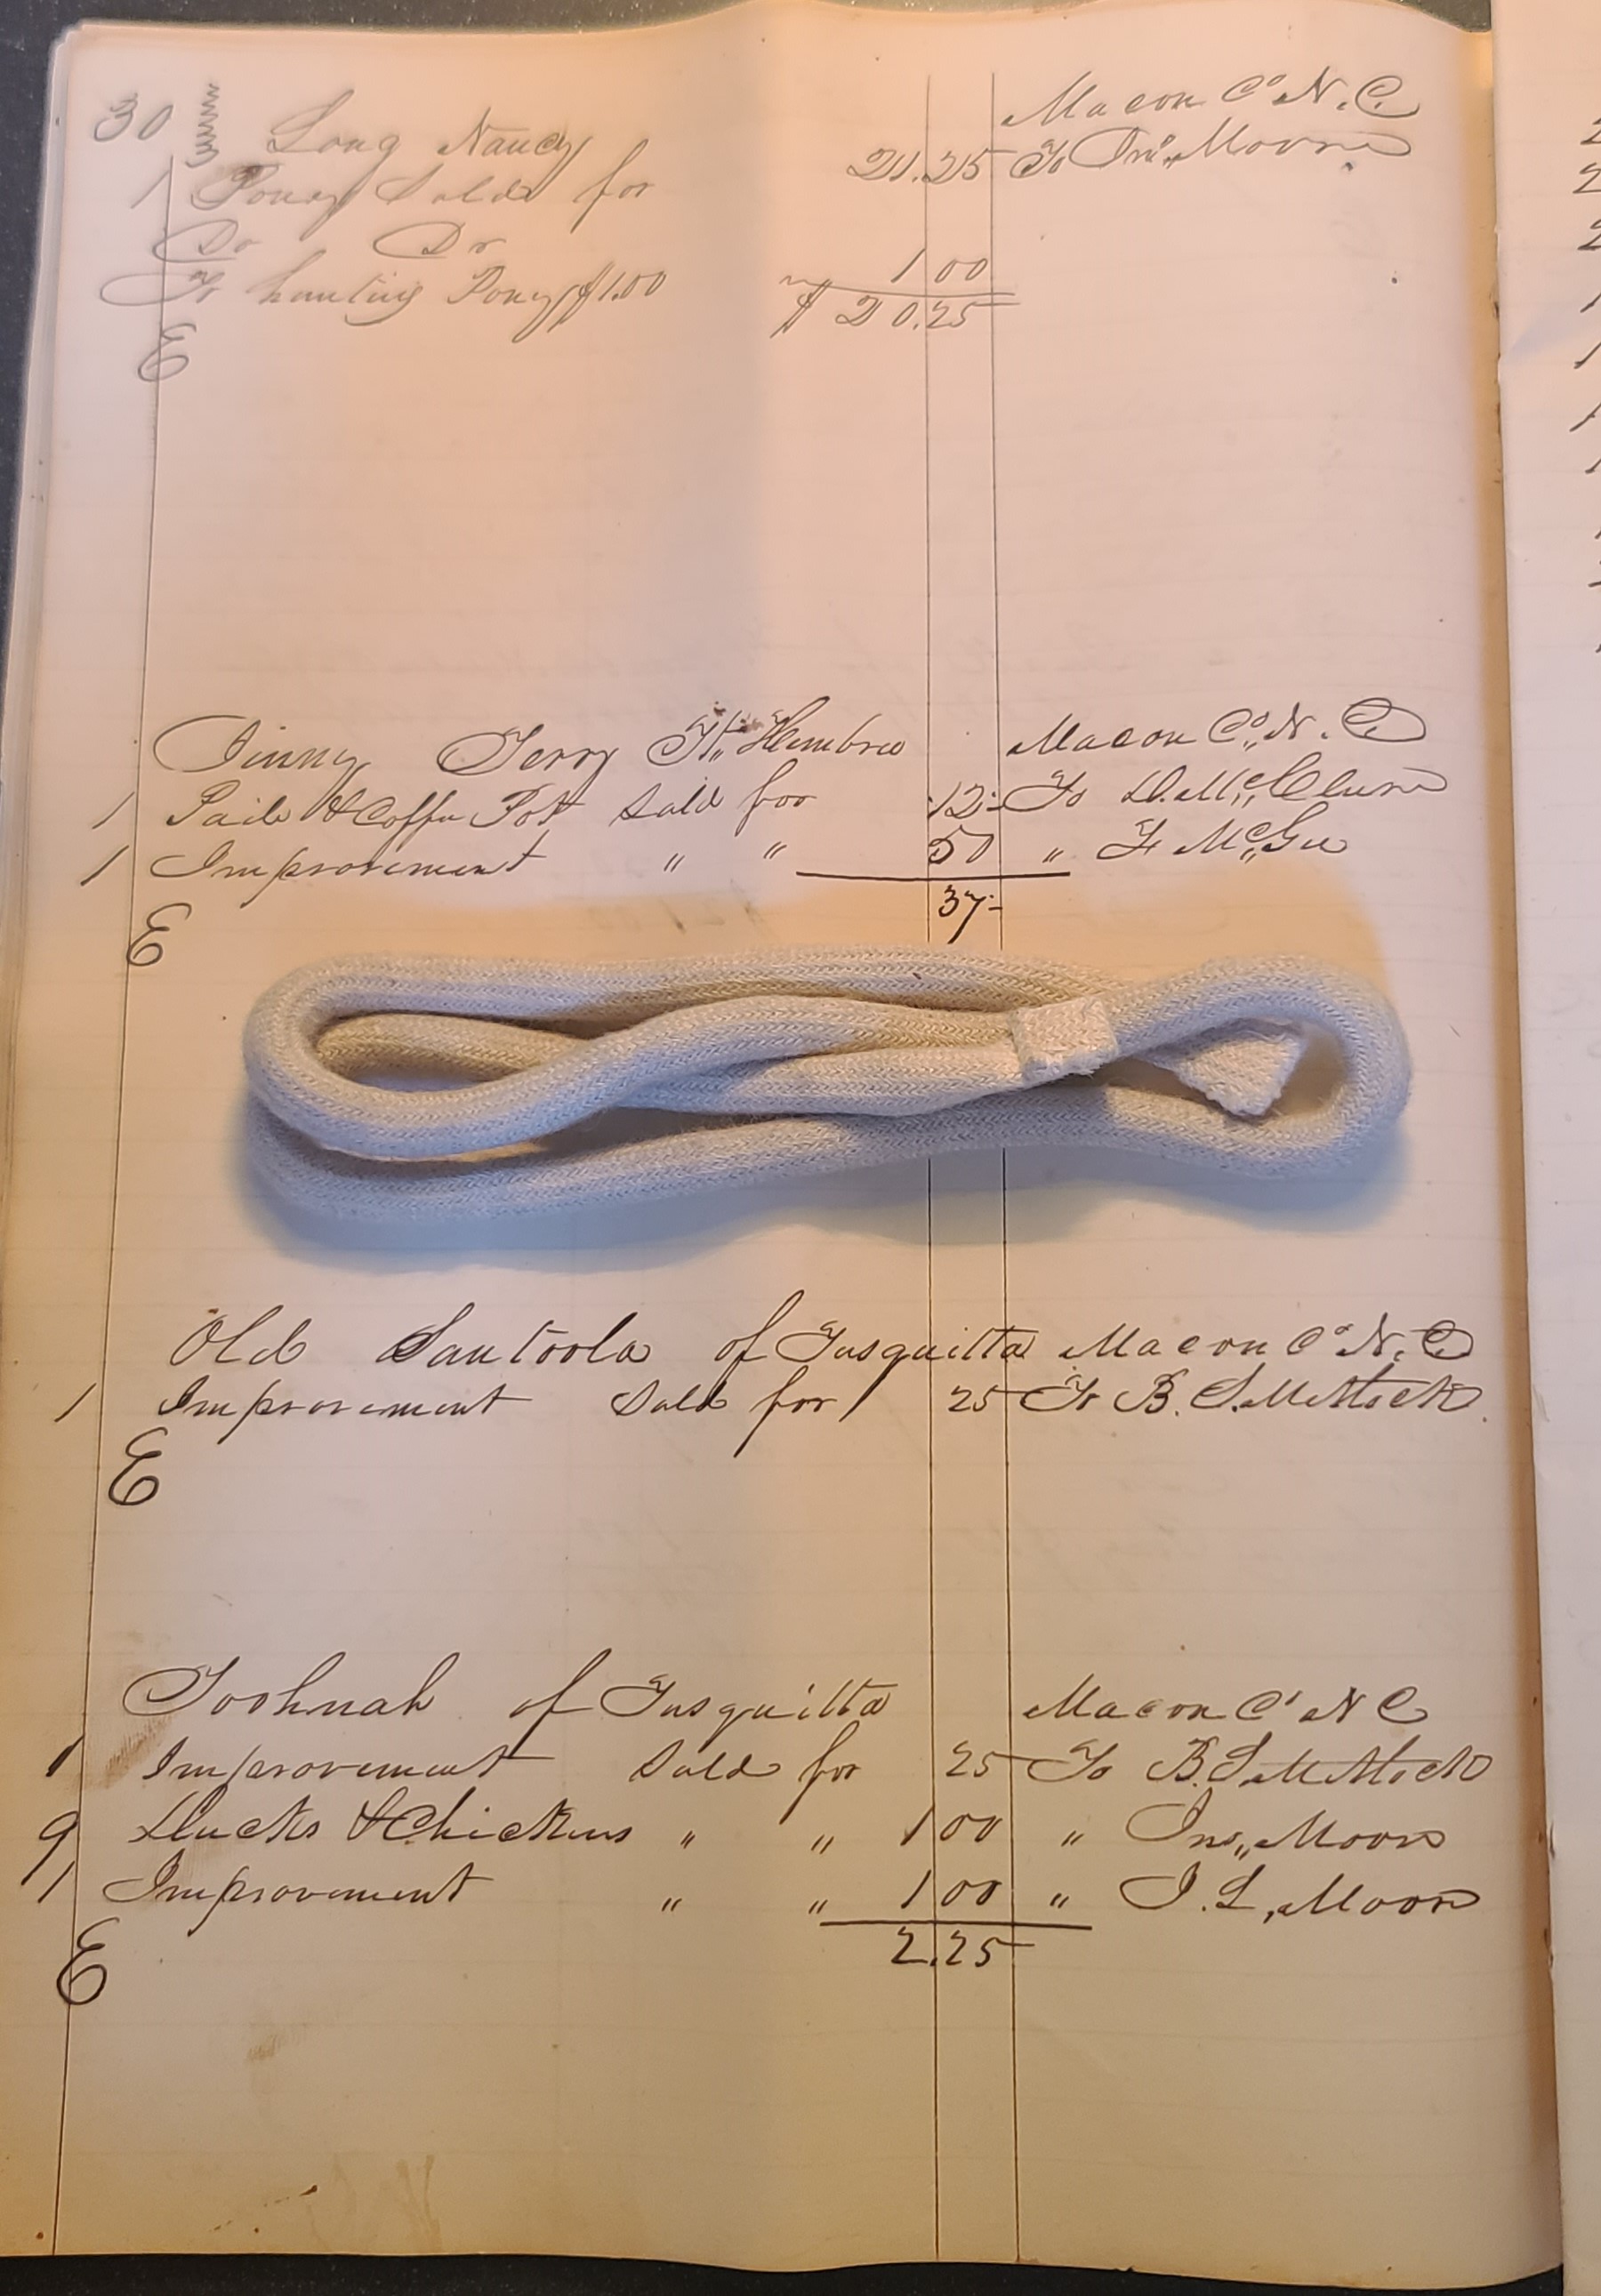 30 Long Nancy Macon Co N.C.
1 Poney Sold for 21.25 To Jno,, Moore
Do Dr
To hunting Poney $1.00 1 00
$20.25
E
Jinney Terry Ft,, Hembree Macon Co,, N.C.
1 Paile & Coffee Pot Sold for 12- To D. Mc,,Clure
1 Improvement " " 50 " F Mc,,Gee
37-
E
Old Santoola of Tusquitta Macon Co N.C.
1 Improvement Sold for 25 To B. S.
E
Toohnah of Tusquitta Macon Co N C
1 Improvement Sold for 25 To B. S.
9 Ducks & Chickens " " 1 00 " Jno,, Moore
1 Improvement " " 1 00 " J. L, Moore
2.25
E